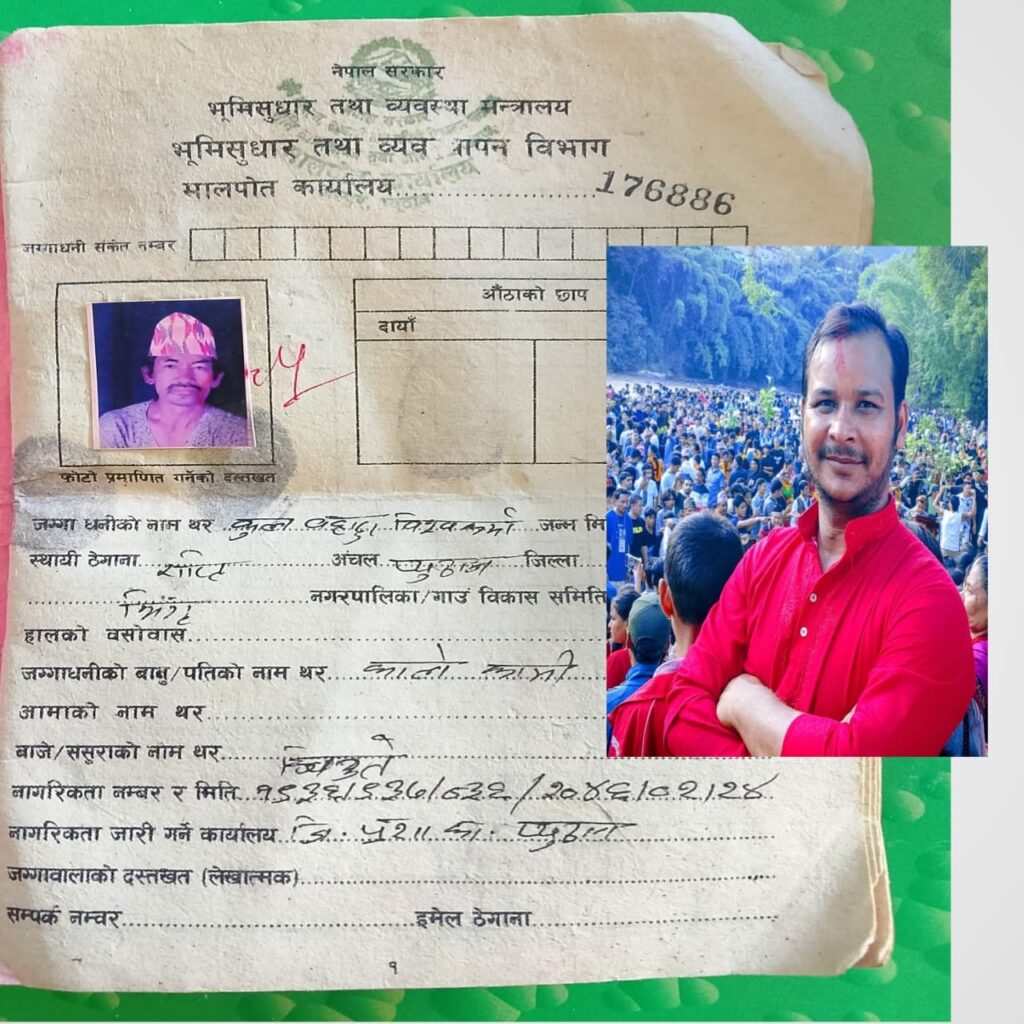 नेपाल सरकार
भूमिसुधार तथा व्यवस्था मन्त्रालय
भूमिसुधार तथा व्यव पन विभाग
मालपोत कार्यालय..............................176886
जग्गाधनी संकेत नम्बर
औंठाको छाप
दायाँ
फोटो प्रमाणित गर्नेको दस्तखत
जग्गा धनीको नाम थर विश्वकर्मा जन्म मि
स्थायी ठेगाना अंचल प्युठान जिल्ला
नगरपालिका/गाउं विकास समिति
हालको वसोवास
जग्गाधनीको बाबु/पतिको नाम थर काले कामी
आमाको नाम थर
बाजे/ससुराको नाम थर
नागरिकता नम्बर र मिति
नागरिकता जारी गर्ने कार्यालय जि. प्रशा का. प्युठान
जग्गावालाको दस्तखत (लेखात्मक)
सम्पर्क नम्वर इमेल ठेगाना
१